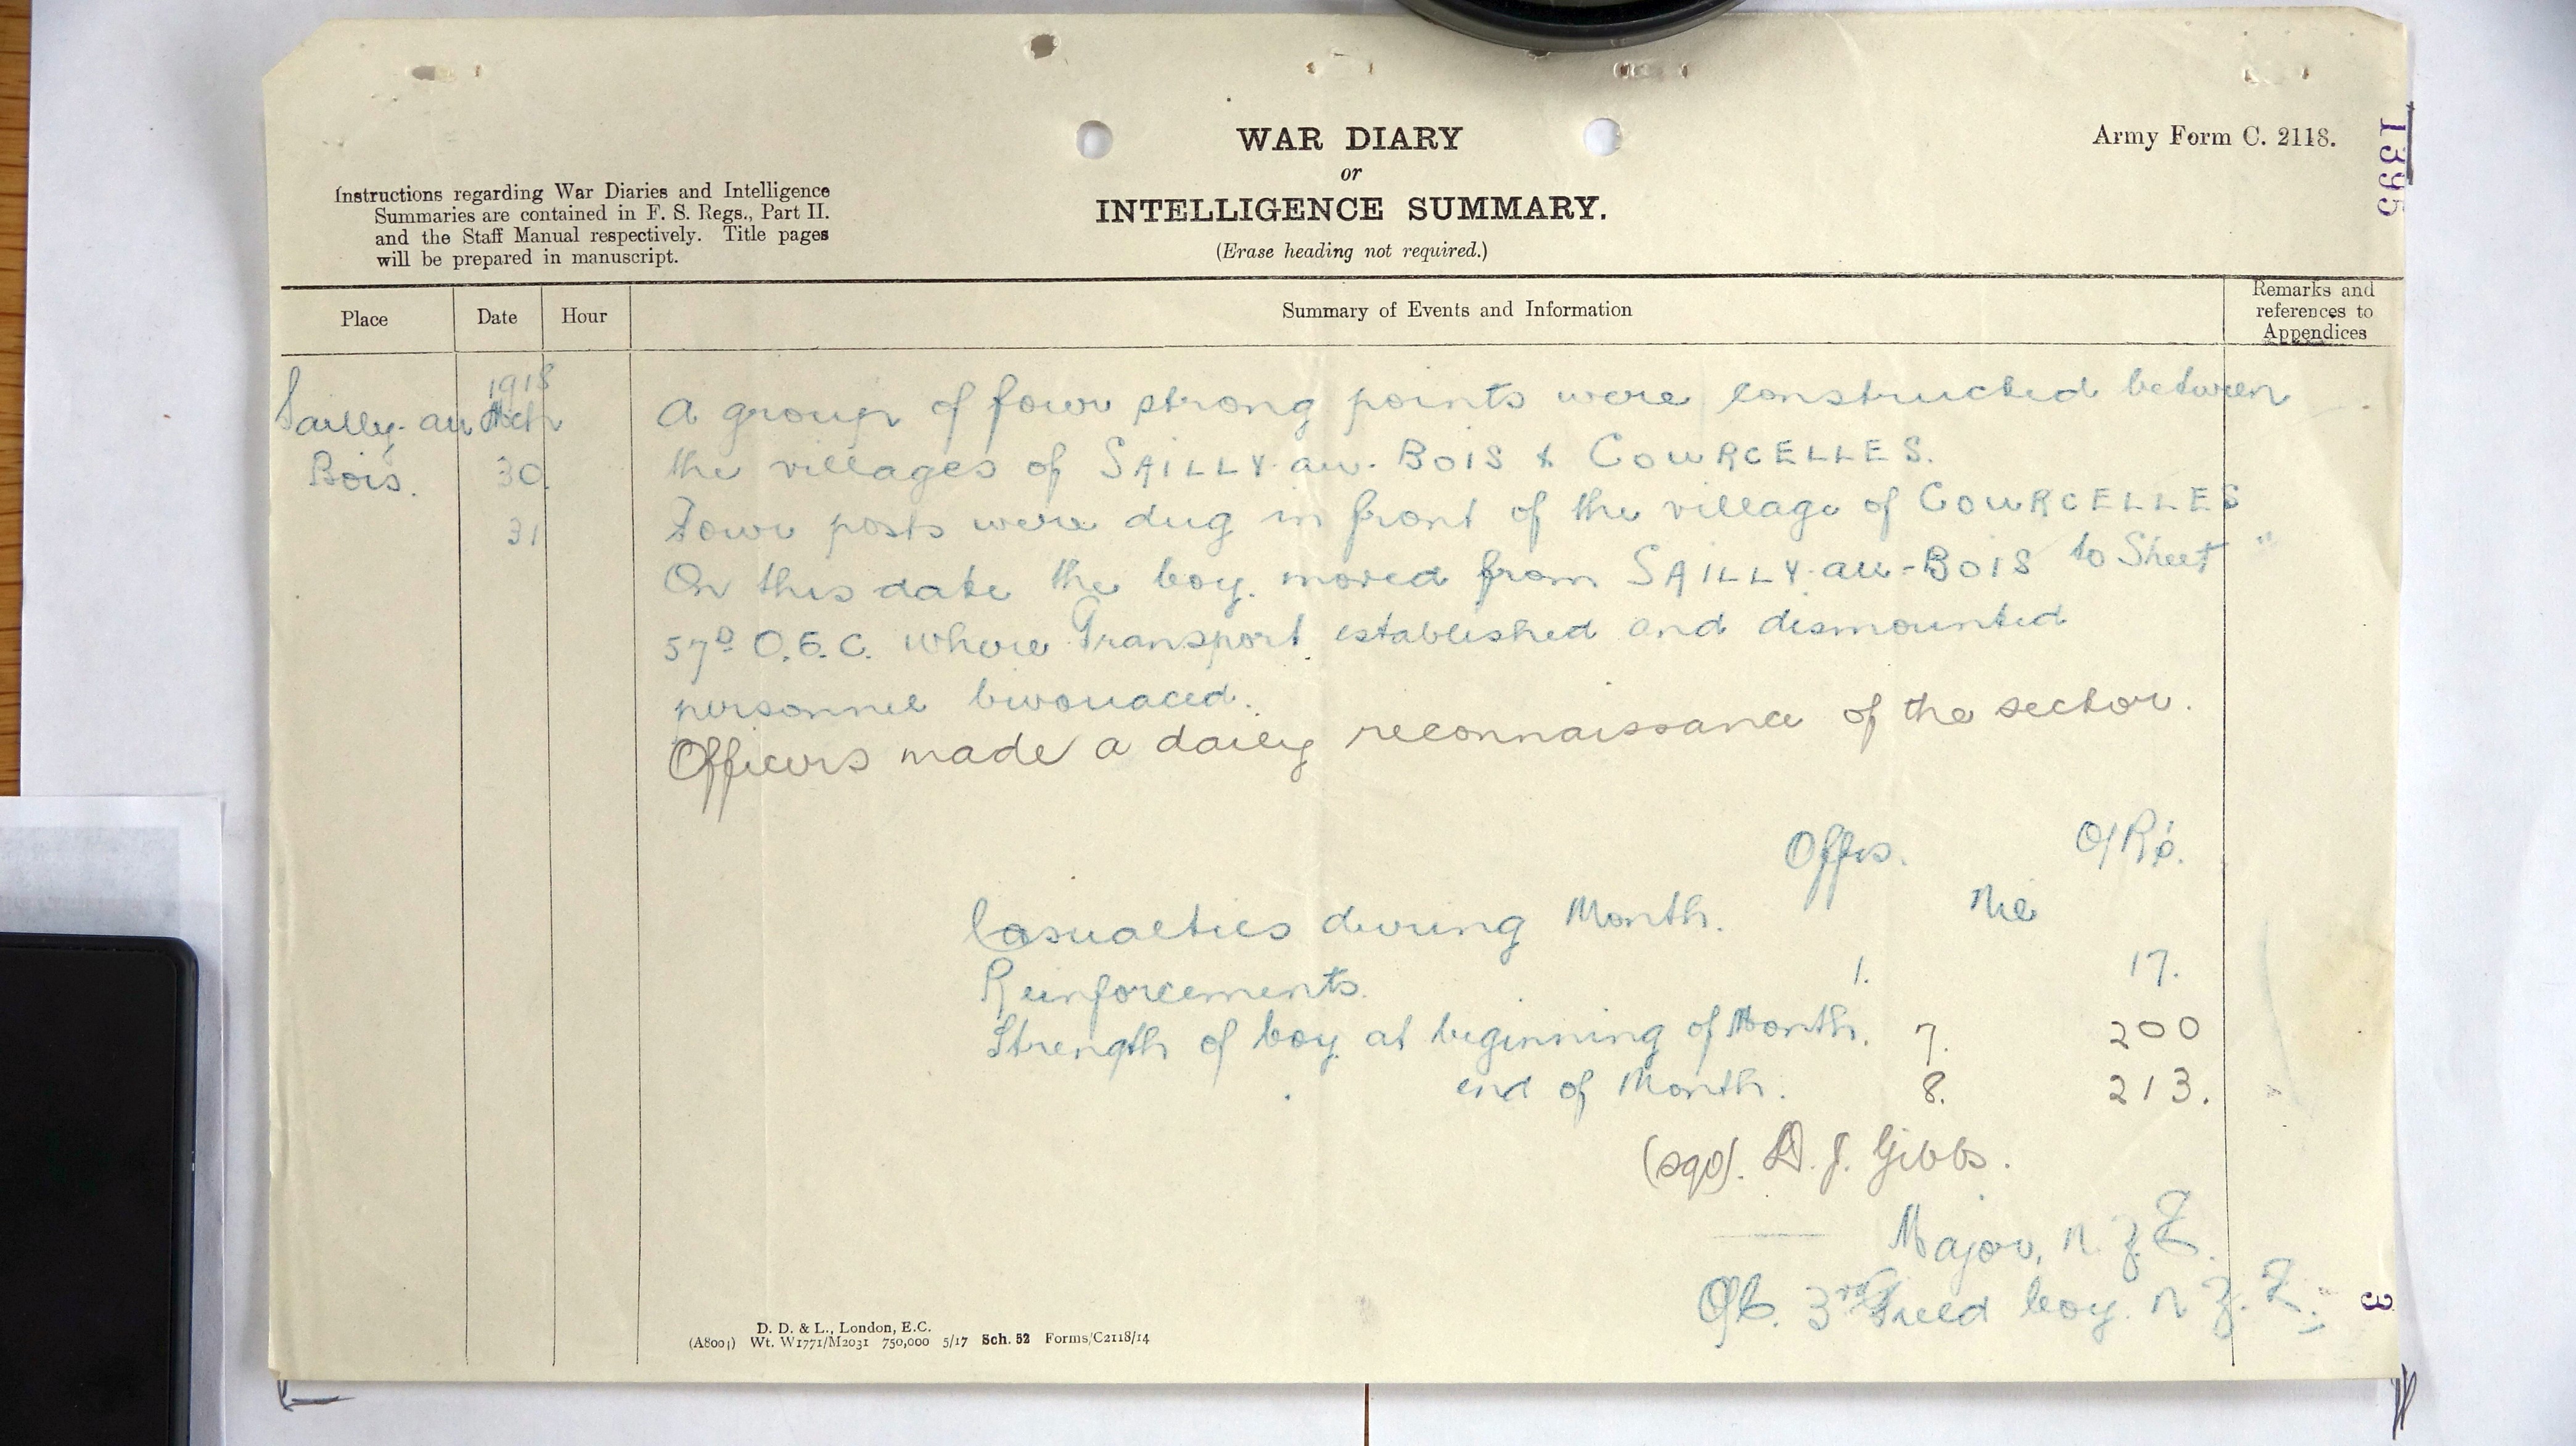 WAR DIARY
or
INTELLIGENCE SUMMARY.
(Erase heading not required.)
Army Form C. 2118.
1395
Instructions regarding War Diaries and Intelligence
Summaries are contained in F. S. Regs., Part II.
and the Staff Manual respectively. Title pages
will be prepared in manuscript.
Place Date Hour Summary of Events and Information Remarks and references to Appendices
1918
Sailly-au Mch A group of four strong points were constructed between
Bois. 30 the villages of SAILLY-au-BOIS & COURCELLES.
31 Four posts were dug in front of the village of COURCELLES
On this date the Coy. moved from SAILLY-au-BOIS to Sheet
57D O.E.C. where Transport established and dismounted
personnel bivouaced.
Officers made a daily reconnaissance of the sector.
Offrs. O/R's.
Casualties during Month. Nil
Reinforcements. 1. 17.
Strength of Coy. at beginning of Month. 7. 200
end of Month. 8. 213.
(sgd). D. J. Gibbs.
Major, N.Z.E.
O/C. 3rd Field Coy. N.Z.E.
3
D. D. & L., London, E.C.
(A8001) Wt. W1771/M2031 750,000 5/17 Sch. 52 Forms/C2118/14